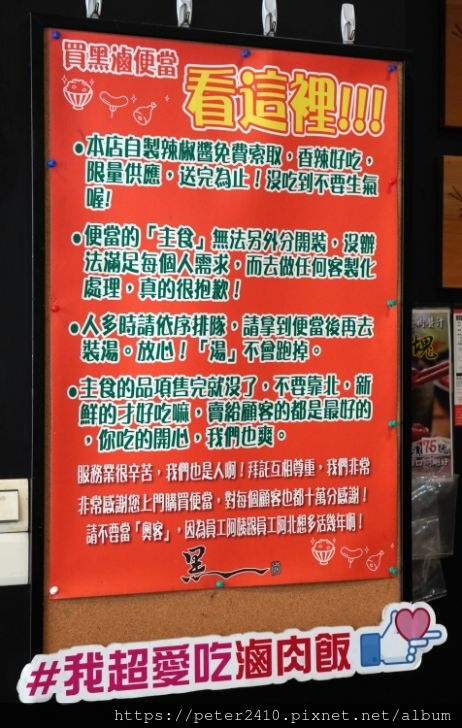 買黑滷便當
看這裡!!!
●本店自製辣椒醬免費索取，香辣好吃，
限量供應，送完為止！沒吃到不要生氣
喔!
●便當的「主食」無法另外分開裝，沒辦
法滿足每個人需求，而去做任何客製化
處理，真的很抱歉！
●人多時請依序排隊，請拿到便當後再去
裝湯。放心！「湯」不會跑掉。
●主食的品項售完就沒了，不要靠北，新
鮮的才好吃嘛，賣給顧客的都是最好的
，你吃的開心，我們也爽。
服務業很辛苦，我們也是人啊！拜託互相尊重，我們非常
非常感謝您上門購買便當，對每個顧客也都十萬分感謝！
請不要當「奧客」，因為員工阿姨跟員工阿北想多活幾年啊！
黑
#我超愛吃滷肉飯
https://peter2410.pixnet.net/album